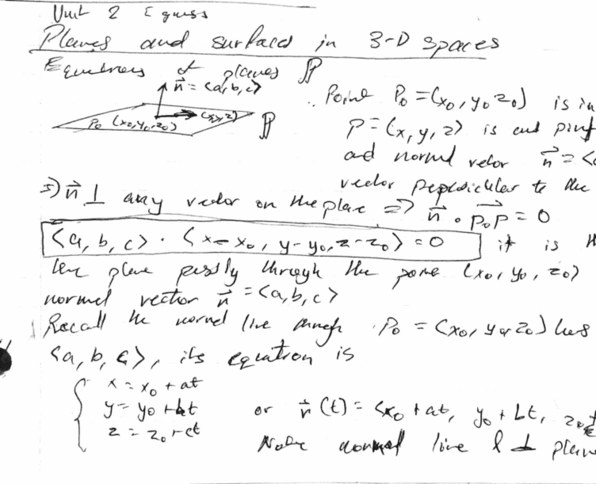 Unit 2
Planes and surfaces in 3-D spaces
Equations of planes ℙ
n⃗ = <a,b,c>
P₀ (x₀, y₀, z₀) (x,y,z) ℙ
Point P₀ = (x₀, y₀, z₀) is in
P = (x, y, z) is
and normal vector n⃗ = <
vector perpendicular to the
n⃗ ⊥ any vector on the plane ⇒ n⃗ • P₀P⃗ = 0
<a, b, c> • <x-x₀, y-y₀, z-z₀> = 0 it is
plane through the (x₀, y₀, z₀)
normal vector n⃗ = <a, b, c>
Recall the normal line P₀ = (x₀, y₀, z₀) has
<a, b, c>, its equation is
x = x₀ + at
y = y₀ + bt
z = z₀ + ct
or (t) = <x₀ + at, y₀ + bt, z₀
Note normal line ⊥ plane